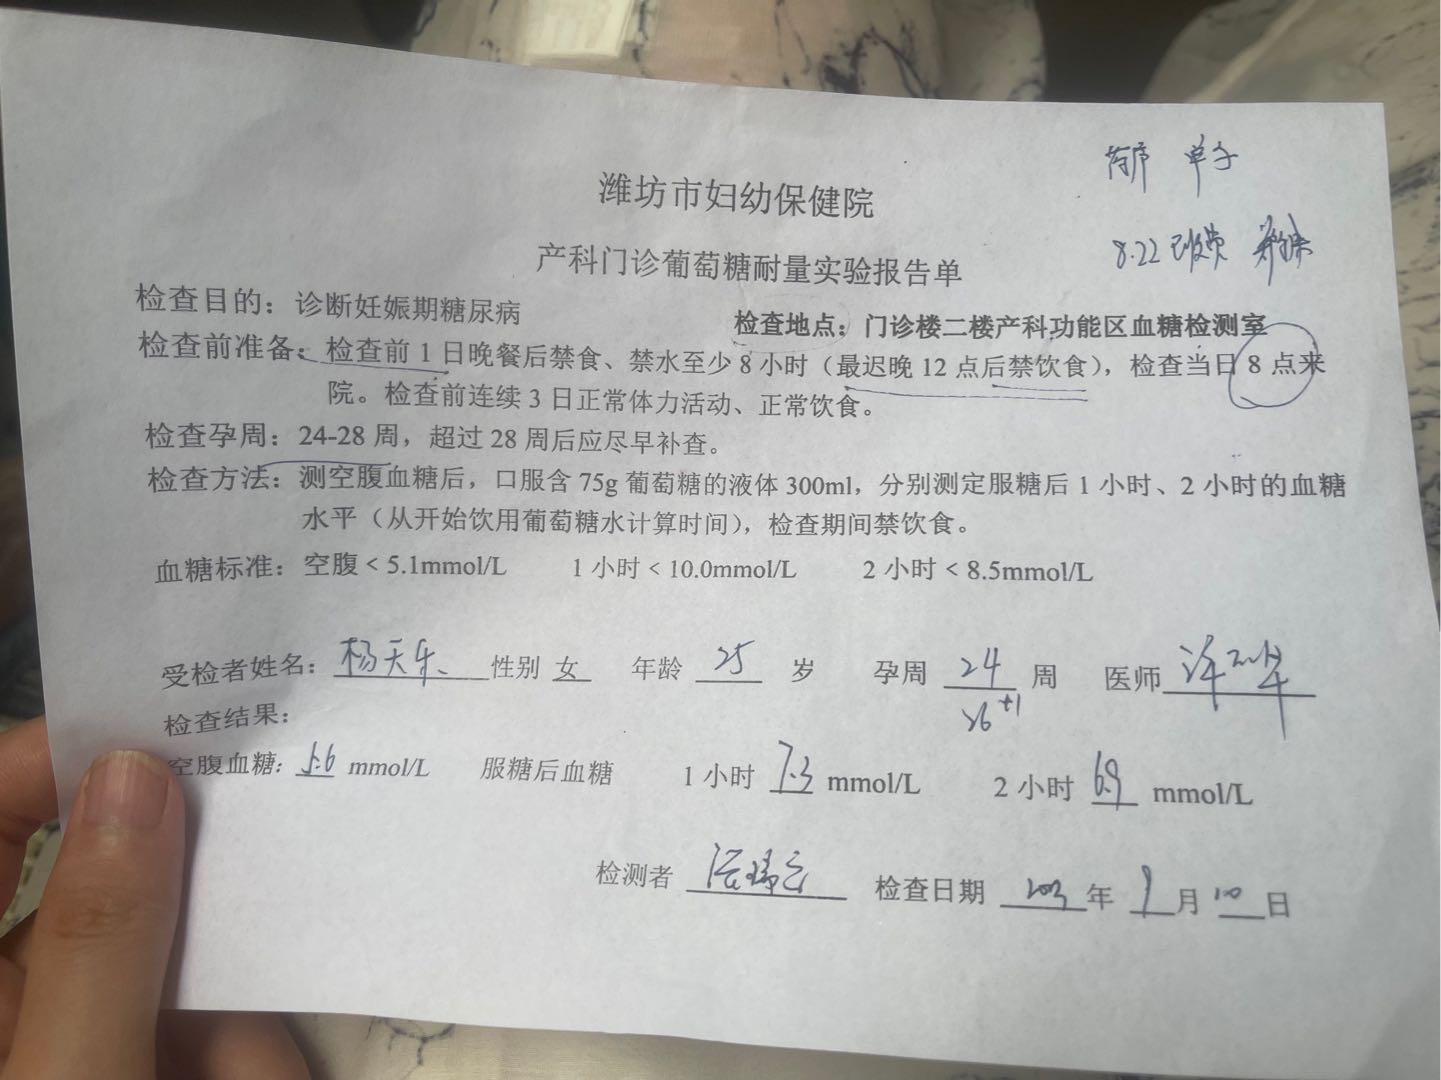 单子
潍坊市妇幼保健院
8.22 已收费
产科门诊葡萄糖耐量实验报告单
检查目的：诊断妊娠期糖尿病
检查地点：门诊楼二楼产科功能区血糖检测室
检查前准备：检查前 1 日晚餐后禁食、禁水至少 8 小时（最迟晚 12 点后禁饮食），检查当日 8 点来
院。检查前连续 3 日正常体力活动、正常饮食。
检查孕周：24-28 周，超过 28 周后应尽早补查。
检查方法：测空腹血糖后，口服含 75g 葡萄糖的液体 300ml，分别测定服糖后 1 小时、2 小时的血糖
水平（从开始饮用葡萄糖水计算时间），检查期间禁饮食。
血糖标准：空腹 < 5.1mmol/L 1 小时 < 10.0mmol/L 2 小时 < 8.5mmol/L
受检者姓名：杨天乐 性别 女 年龄 25 岁 孕周 24 周 医师
26+1
检查结果：
空腹血糖: 5.6 mmol/L 服糖后血糖 1 小时 7.3 mmol/L 2 小时 6.9 mmol/L
检测者 检查日期 2023 年 9 月 10 日